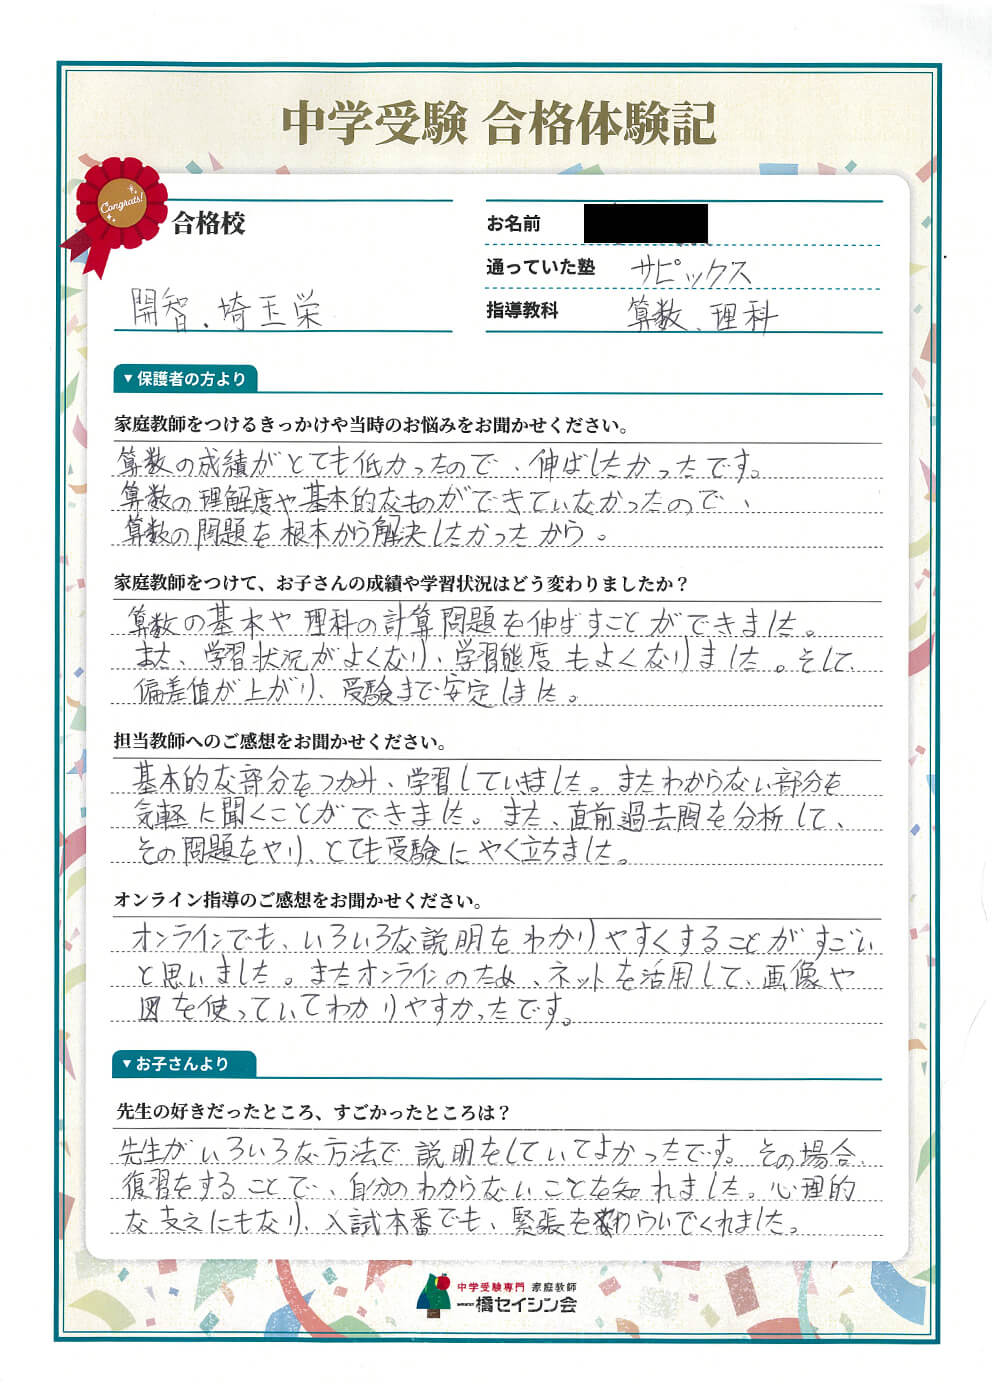 中学受験 合格体験記
Congrats!
合格校
開智、埼玉栄
お名前
通っていた塾 サピックス
指導教科 算数、理科
▼保護者の方より
家庭教師をつけるきっかけや当時のお悩みをお聞かせください。
算数の成績がとても低かったので、伸ばしたかったです。
算数の理解度や基本的なものができていなかったので、
算数の問題を根本から解決したかったから。
家庭教師をつけて、お子さんの成績や学習状況はどう変わりましたか？
算数の基本や理科の計算問題を伸ばすことができました。
また、学習状況がよくなり、学習態度もよくなりました。そして、
偏差値が上がり、受験まで安定しました。
担当教師へのご感想をお聞かせください。
基本的な部分をつかみ、学習していきました。またわからない部分を
気軽に聞くことができました。また、直前過去問を分析して、
その問題をやり、とても受験にやく立ちました。
オンライン指導のご感想をお聞かせください。
オンラインでも、いろいろな説明をわかりやすくすることがすごい
と思いました。またオンラインのため、ネットを活用して、画像や
図を使っていてわかりやすかったです。
▼お子さんより
先生の好きだったところ、すごかったところは？
先生がいろいろな方法で説明をしていてよかったです。その場合、
復習をすることで、自分のわからないことを知れました。心理的
な支えにもなり、入試本番でも、緊張をやわらいでくれました。
中学受験専門 家庭教師
橋セイシン会